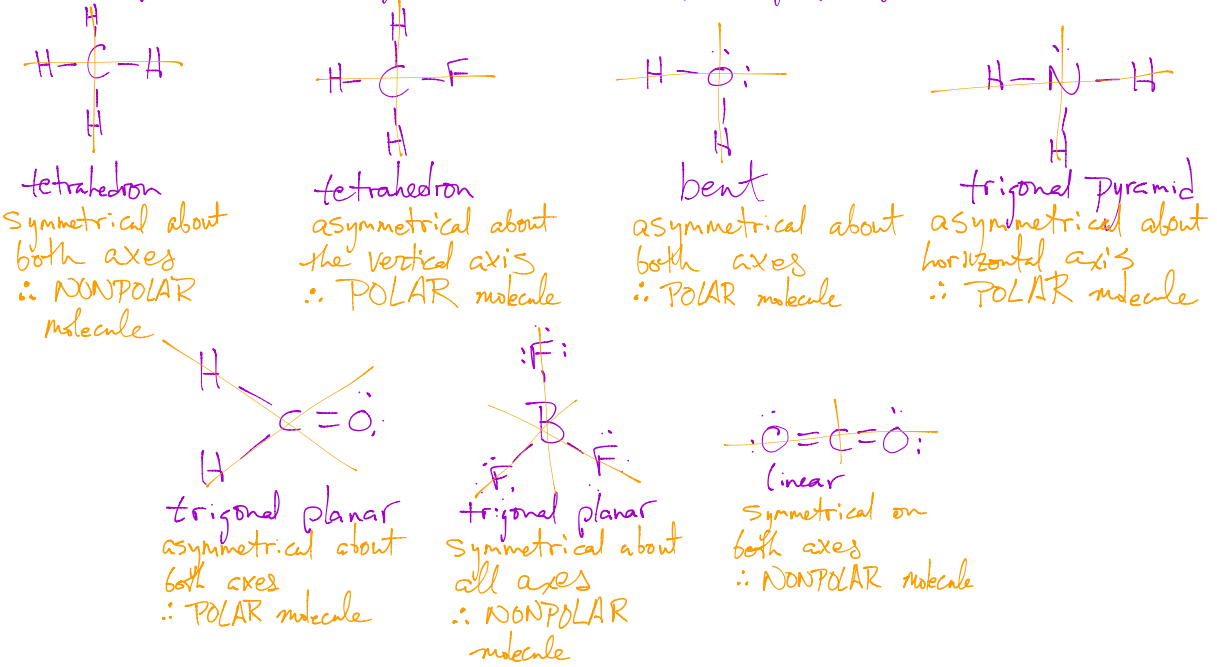 H
H-C-H
H
tetrahedron
symmetrical about
both axes
∴ NONPOLAR
molecule
H
H-C-F
H
tetrahedron
asymmetrical about
the vertical axis
∴ POLAR molecule
H-O:
H
bent
asymmetrical about
both axes
∴ POLAR molecule
H-N-H
H
trigonal pyramid
asymmetrical about
horizontal axis
∴ POLAR molecule
H
C=O
H
trigonal planar
asymmetrical about
both axes
∴ POLAR molecule
:F:
B
F F
trigonal planar
symmetrical about
all axes
∴ NONPOLAR
molecule
:O=C=O:
linear
symmetrical on
both axes
∴ NONPOLAR molecule